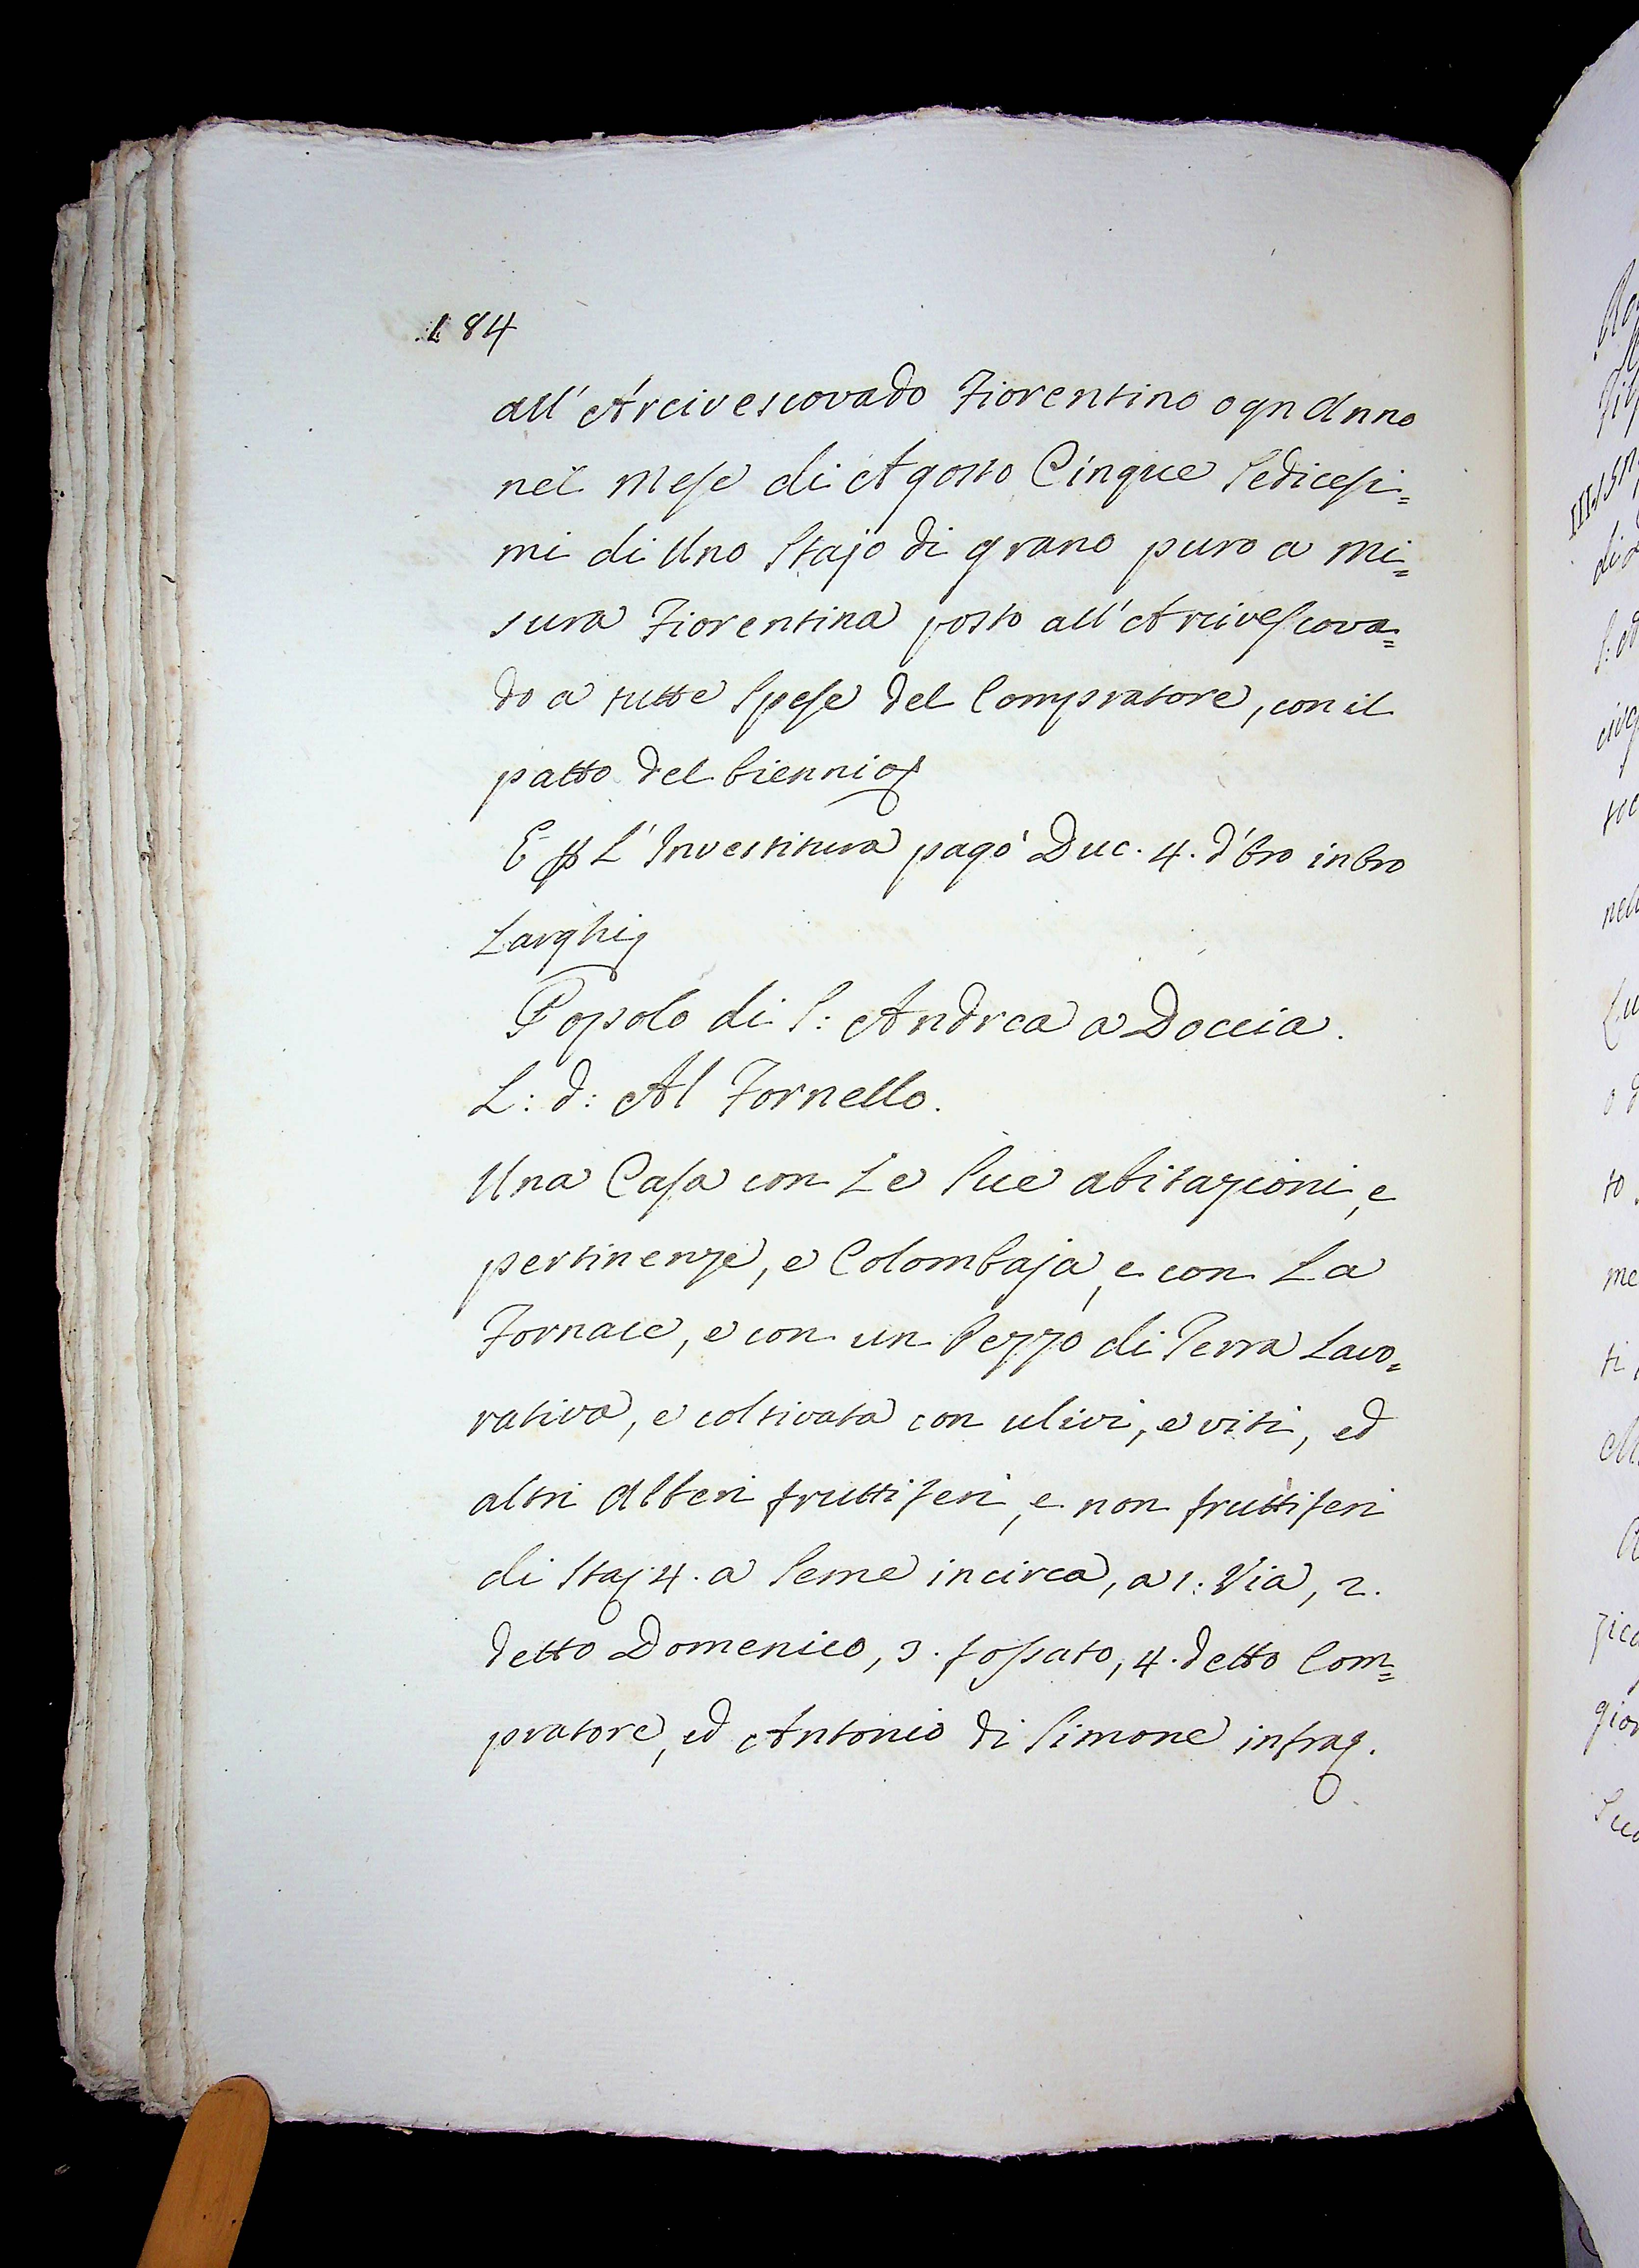 184
all' Arcivescovado Fiorentino ogn Anno
nel Mese di Agosto Cinque Sedicesi=
mi di Uno Stajo di grano puro a Mi=
sura Fiorentina posto all' Arcivescova=
do a tutte Spese del Compratore, con il
patto del biennio
E ꝑ L' Investitura pagò Duc. 4. d'Oro in Oro
Larghi
Popolo di S: Andrea a Doccia.
L: d: Al Fornello.
Una Casa con Le Sue abitazioni, e
pertinenze, e Colombaja, e con La
Fornace, e con un Pezzo di Terra Lavo=
rativa, e coltivata con ulivi, e viti, ed
altri Alberi fruttiferi, e non fruttiferi
di Staj 4. a Seme incirca, a 1: Via, 2.
detto Domenico, 3. fossato, 4. detto Com=
pratore, ed Antonio di Simone infra.